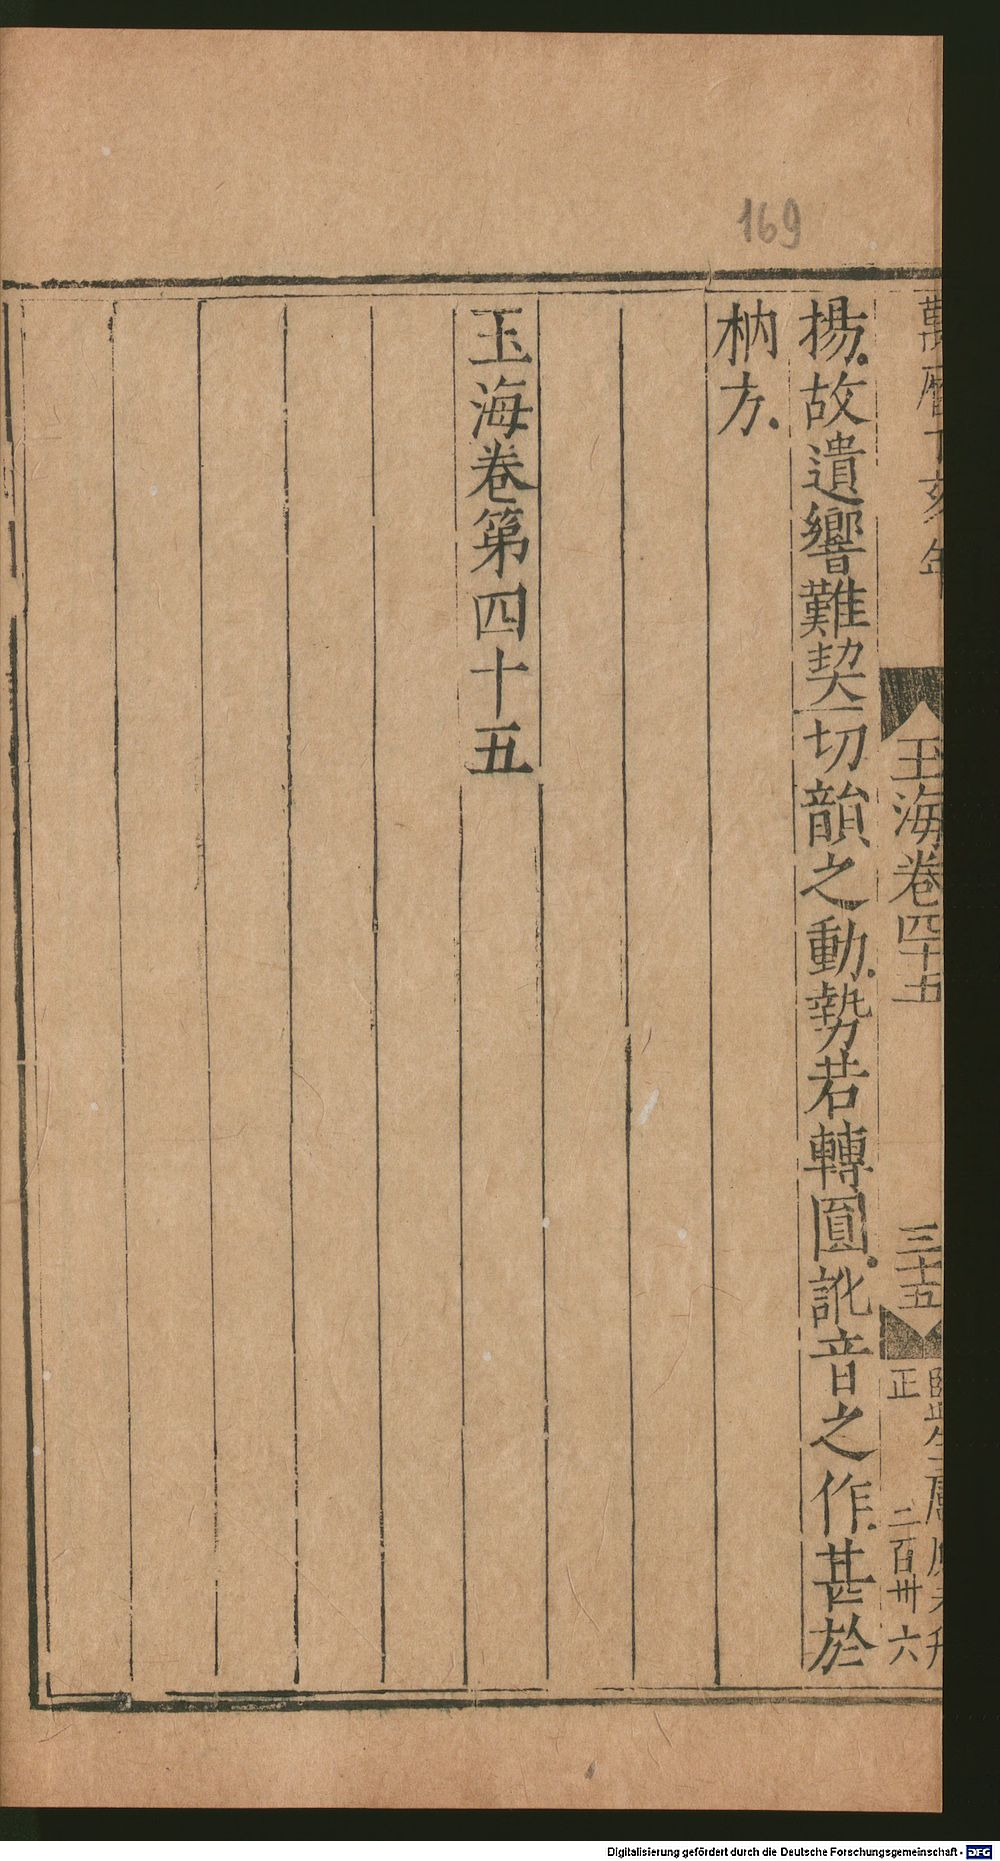 169
萬曆丁亥年
玉海卷四十五
三十五
正
二百卅六
揚故遺響難契切韻之動勢若轉圓訛音之作甚於
枘方
玉海卷第四十五
Digitalisierung gefördert durch die Deutsche Forschungsgemeinschaft - DFG